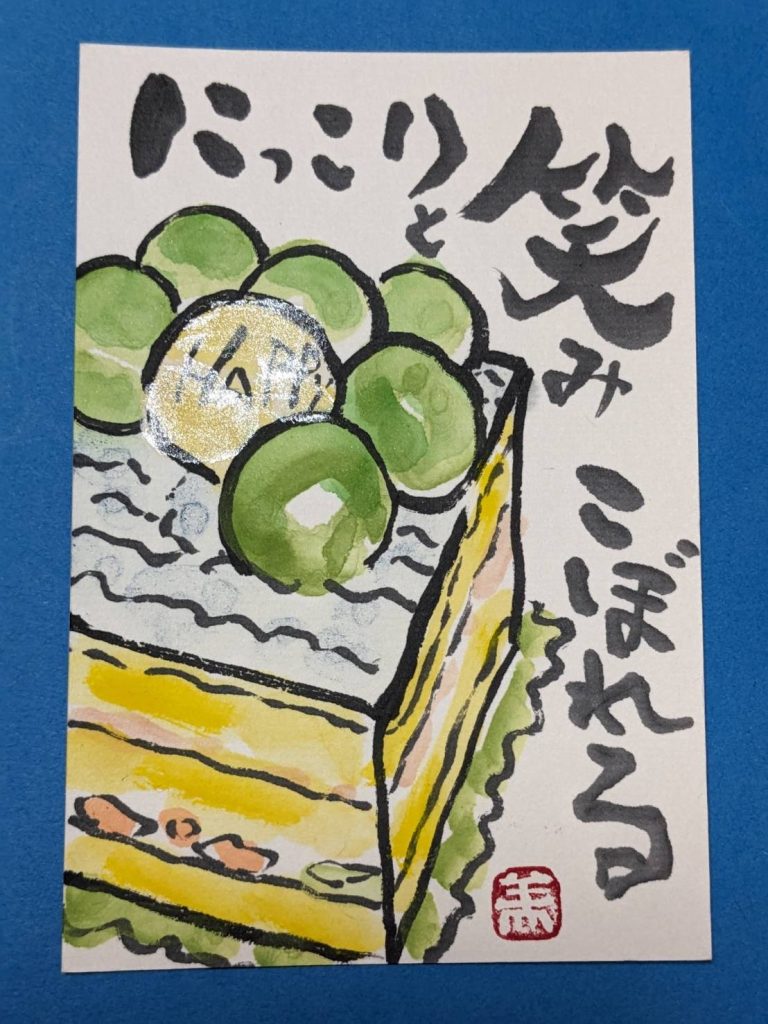 にっこりと
笑み
こぼれる
HAPPY